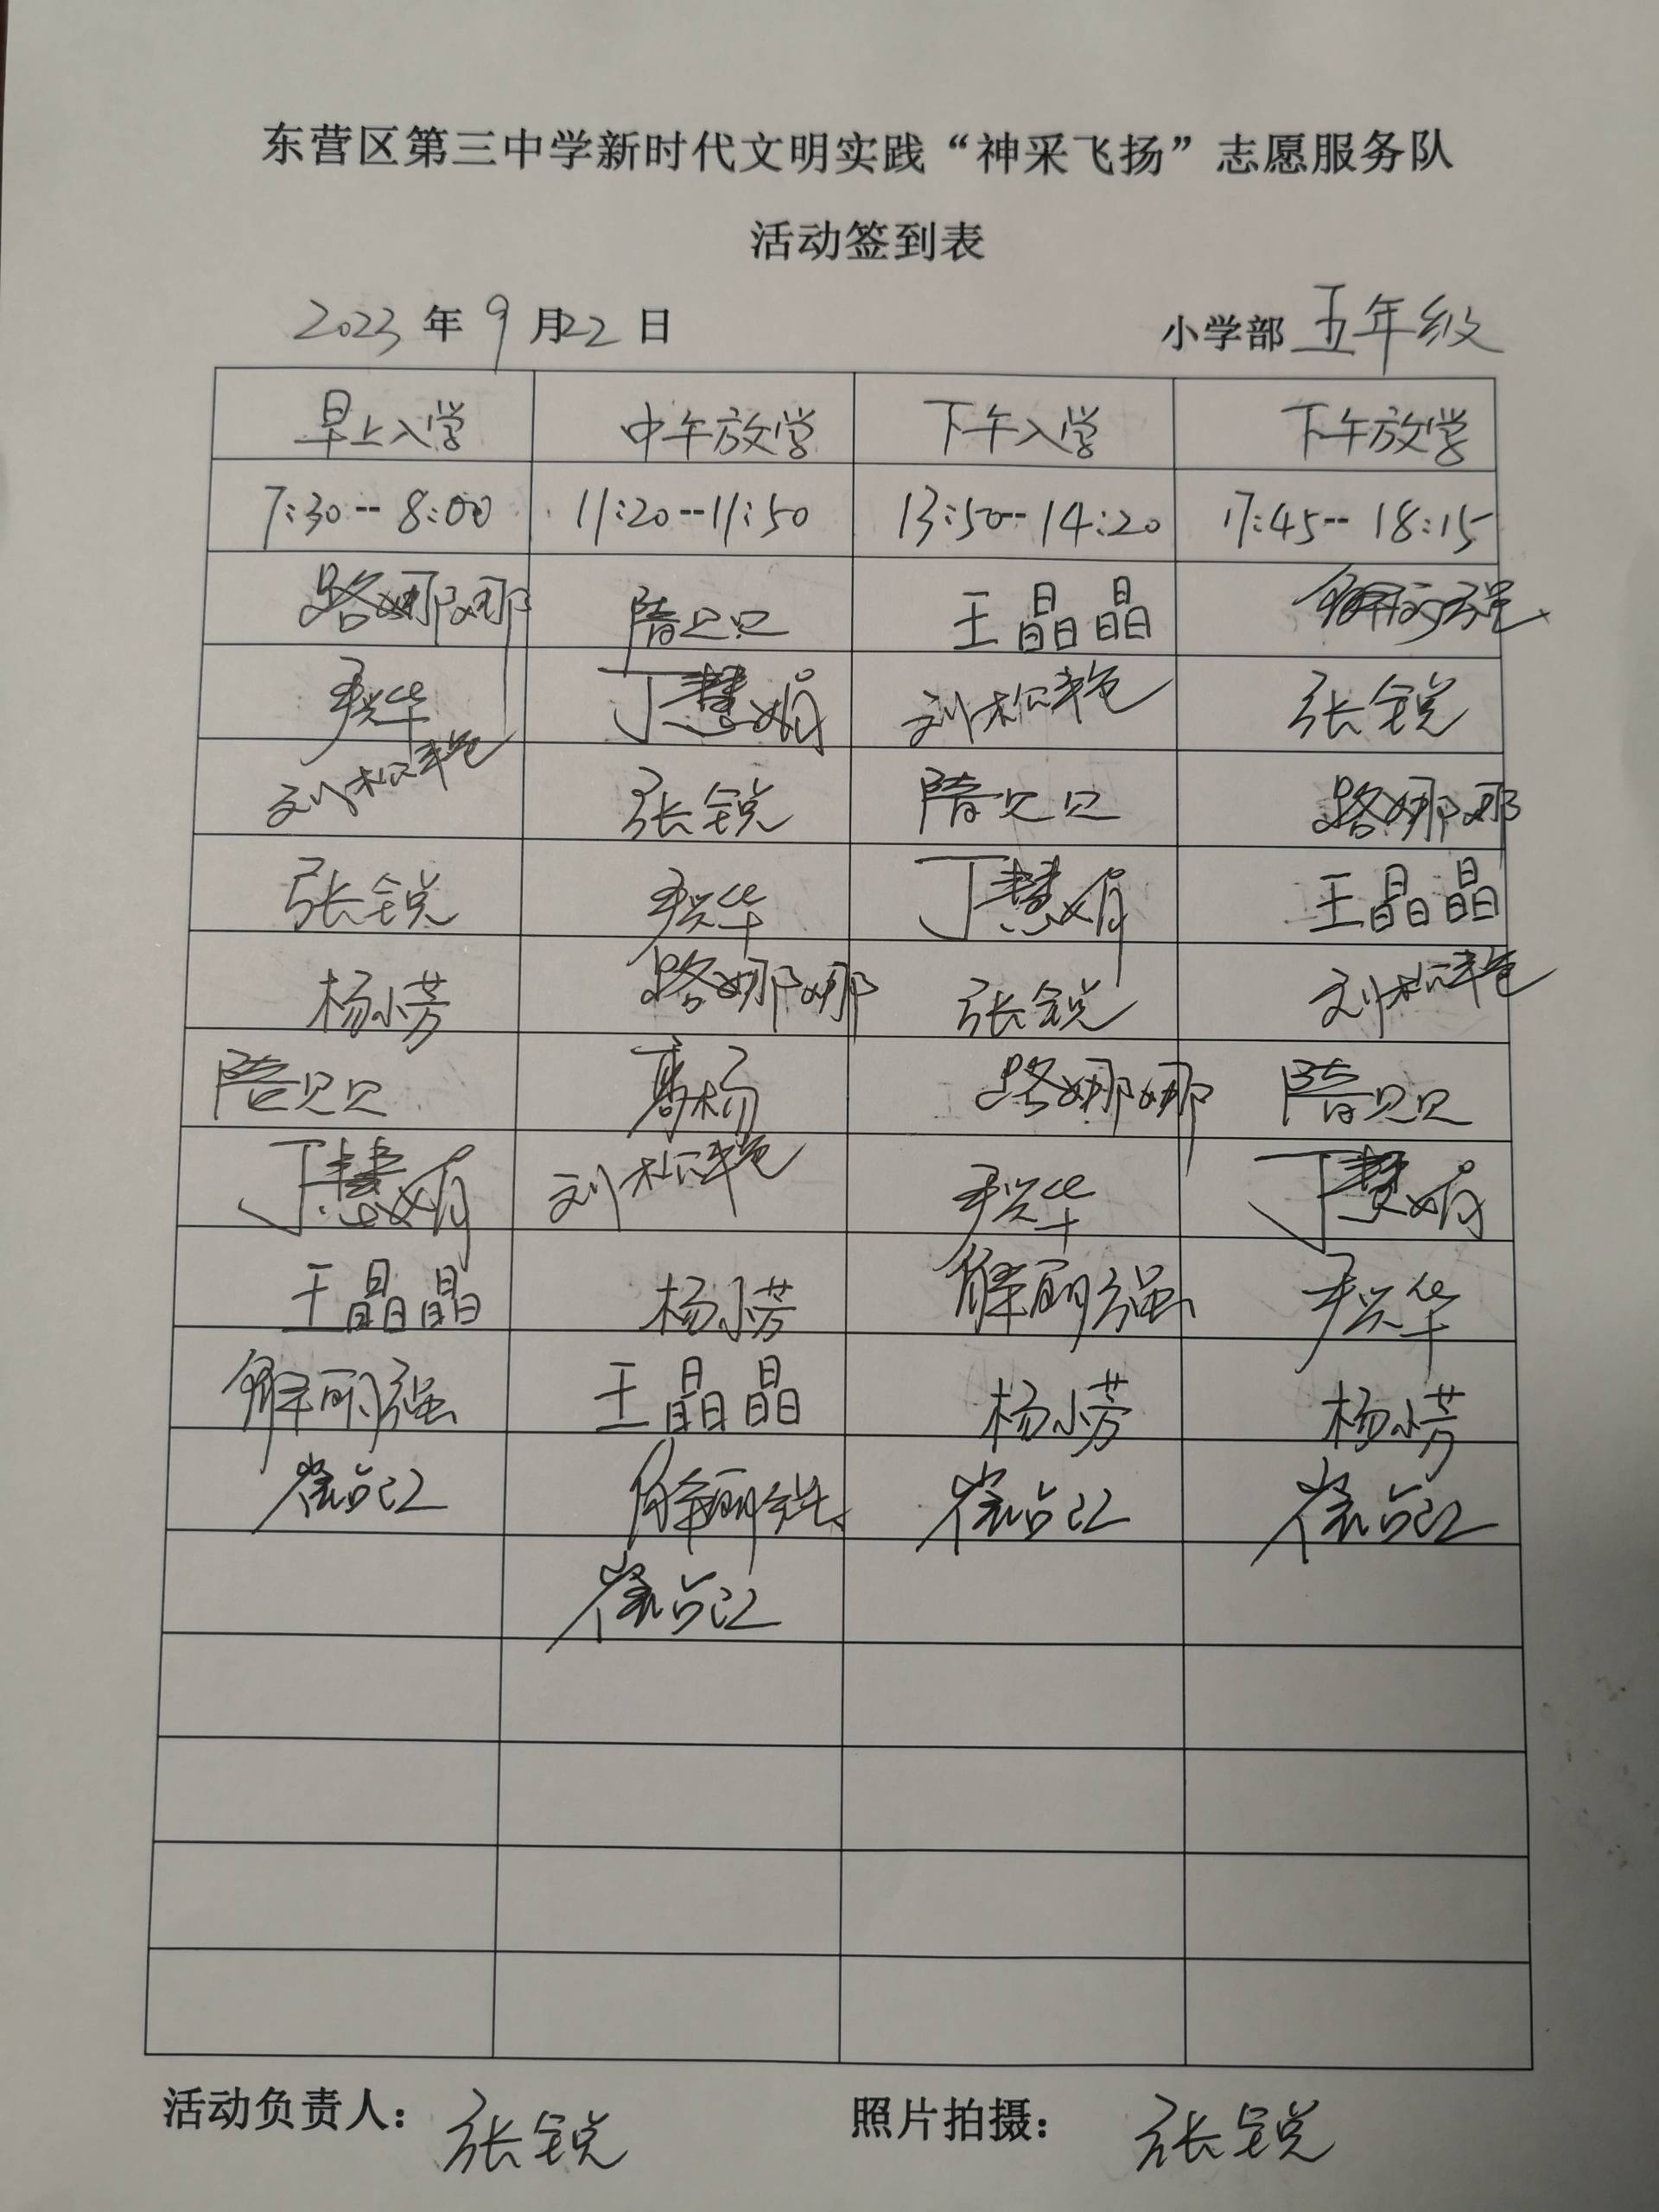 东营区第三中学新时代文明实践“神采飞扬”志愿服务队
活动签到表
2023年9月22日 小学部 五年级
早上入学 中午放学 下午入学 下午放学
7:30--8:00 11:20--11:50 13:50--14:20 17:45--18:15
路娜娜 隋贝贝 王晶晶 解丽强
华 丁慧娟 刘松艳 张锐
刘松艳 张锐 隋贝贝 路娜娜
张锐 华 丁慧娟 王晶晶
杨小芳 路娜娜 张锐 刘松艳
隋贝贝 杨 路娜娜 隋贝贝
丁慧娟 刘松艳 华 丁慧娟
王晶晶 杨小芳 解丽强 华
解丽强 王晶晶 杨小芳 杨小芳
崔占江 解丽强 崔占江 崔占江
崔占江
活动负责人：张锐 照片拍摄：张锐